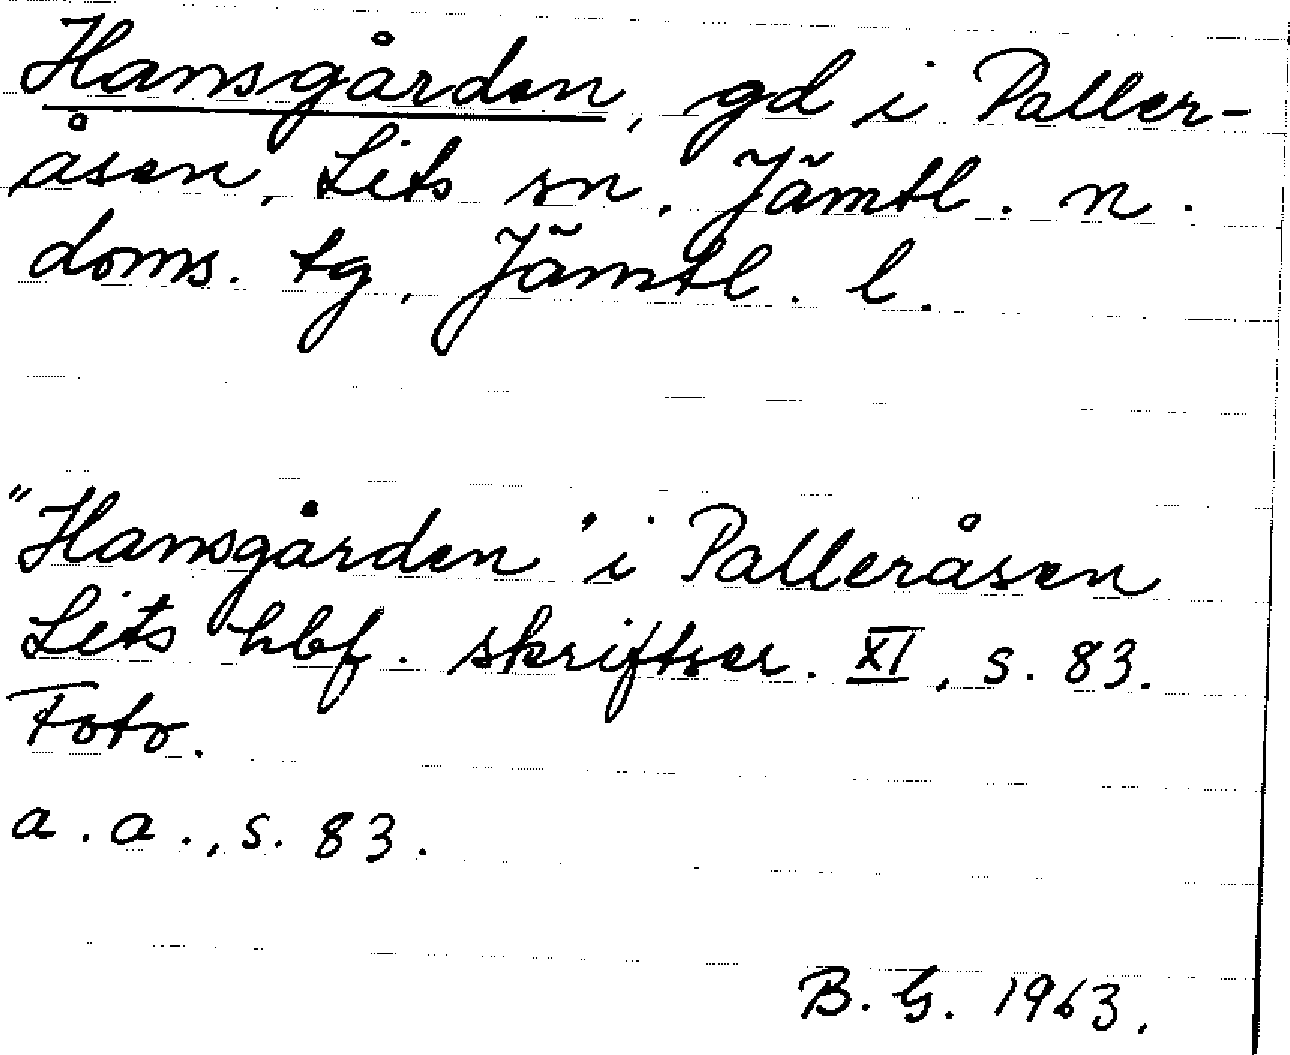 Hansgården, gd i Paller-
åsen, Lits sn, Jämtl. n.
doms. tg, Jämtl. l.
"Hansgården" i Palleråsen
Lits hbf. skriftser. XI, s. 83.
Foto.
a.a., s. 83.
B. G. 1963.